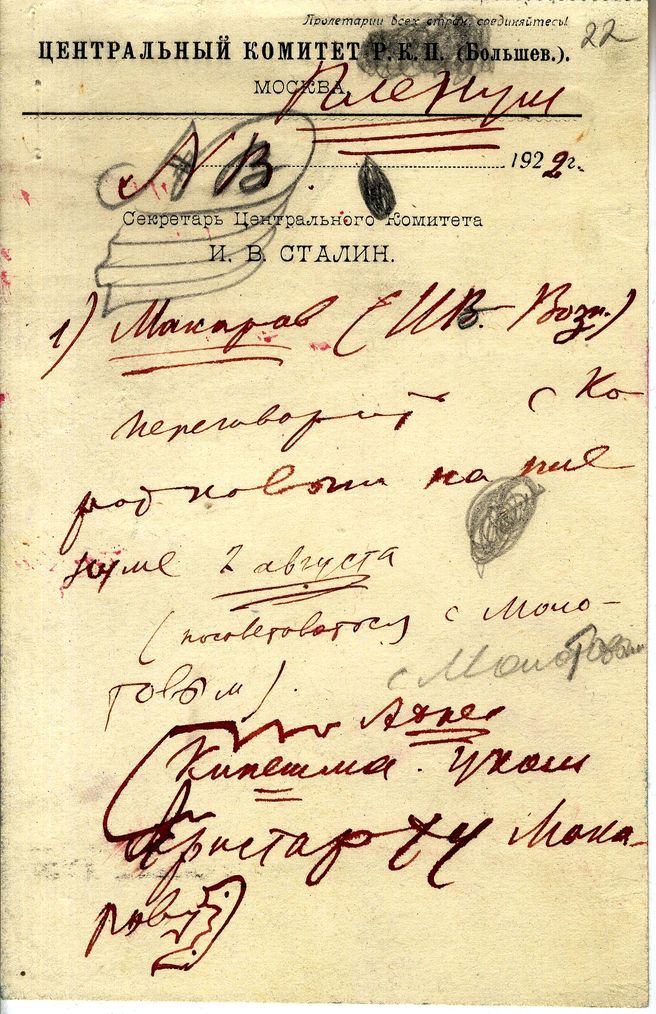 Пролетарии всех стран, соединяйтесь!
22
ЦЕНТРАЛЬНЫЙ КОМИТЕТ Р. К. П. (Большев.).
МОСКВА,
Пленум
NB
1922 г.
Секретарь Центрального Комитета
И. В. СТАЛИН.
1) Макаров (Ив.-Возн.)
переговорить с Ко-
ротковым на пле
нуме 2 августа
(посоветоваться с Моло-
товым).
с Молотовым
Адрес
(Кинешма. Уком
Аристарху Мака-
рову)